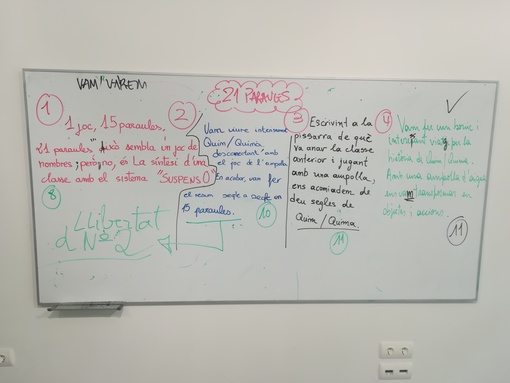 VAM "VÀREM
21 PARAULES
1
1 joc, 15 paraules,
21 paraules." Això sembla un joc de
nombres; però no, és La síntesi d'una
classe amb el sistema "SUSPENSO"
8
LLibertat
d
2
Vam viure intensament
Quim/Quima,
descomptant amb
el joc de l'ampolla.
En acabar, vam fer
el resum segle a segle en
15 paraules.
10
3
Escrivint a la
pissarra de què
va anar la classe
anterior i jugant
amb una ampolla,
ens acomiadem de
deu segles de
Quim/Quima.
11
4
Vam fer un
viatge per la
història de Quim/Quima.
Amb una ampolla d'aigua
ens vam transformar en
objectes i accions.
11